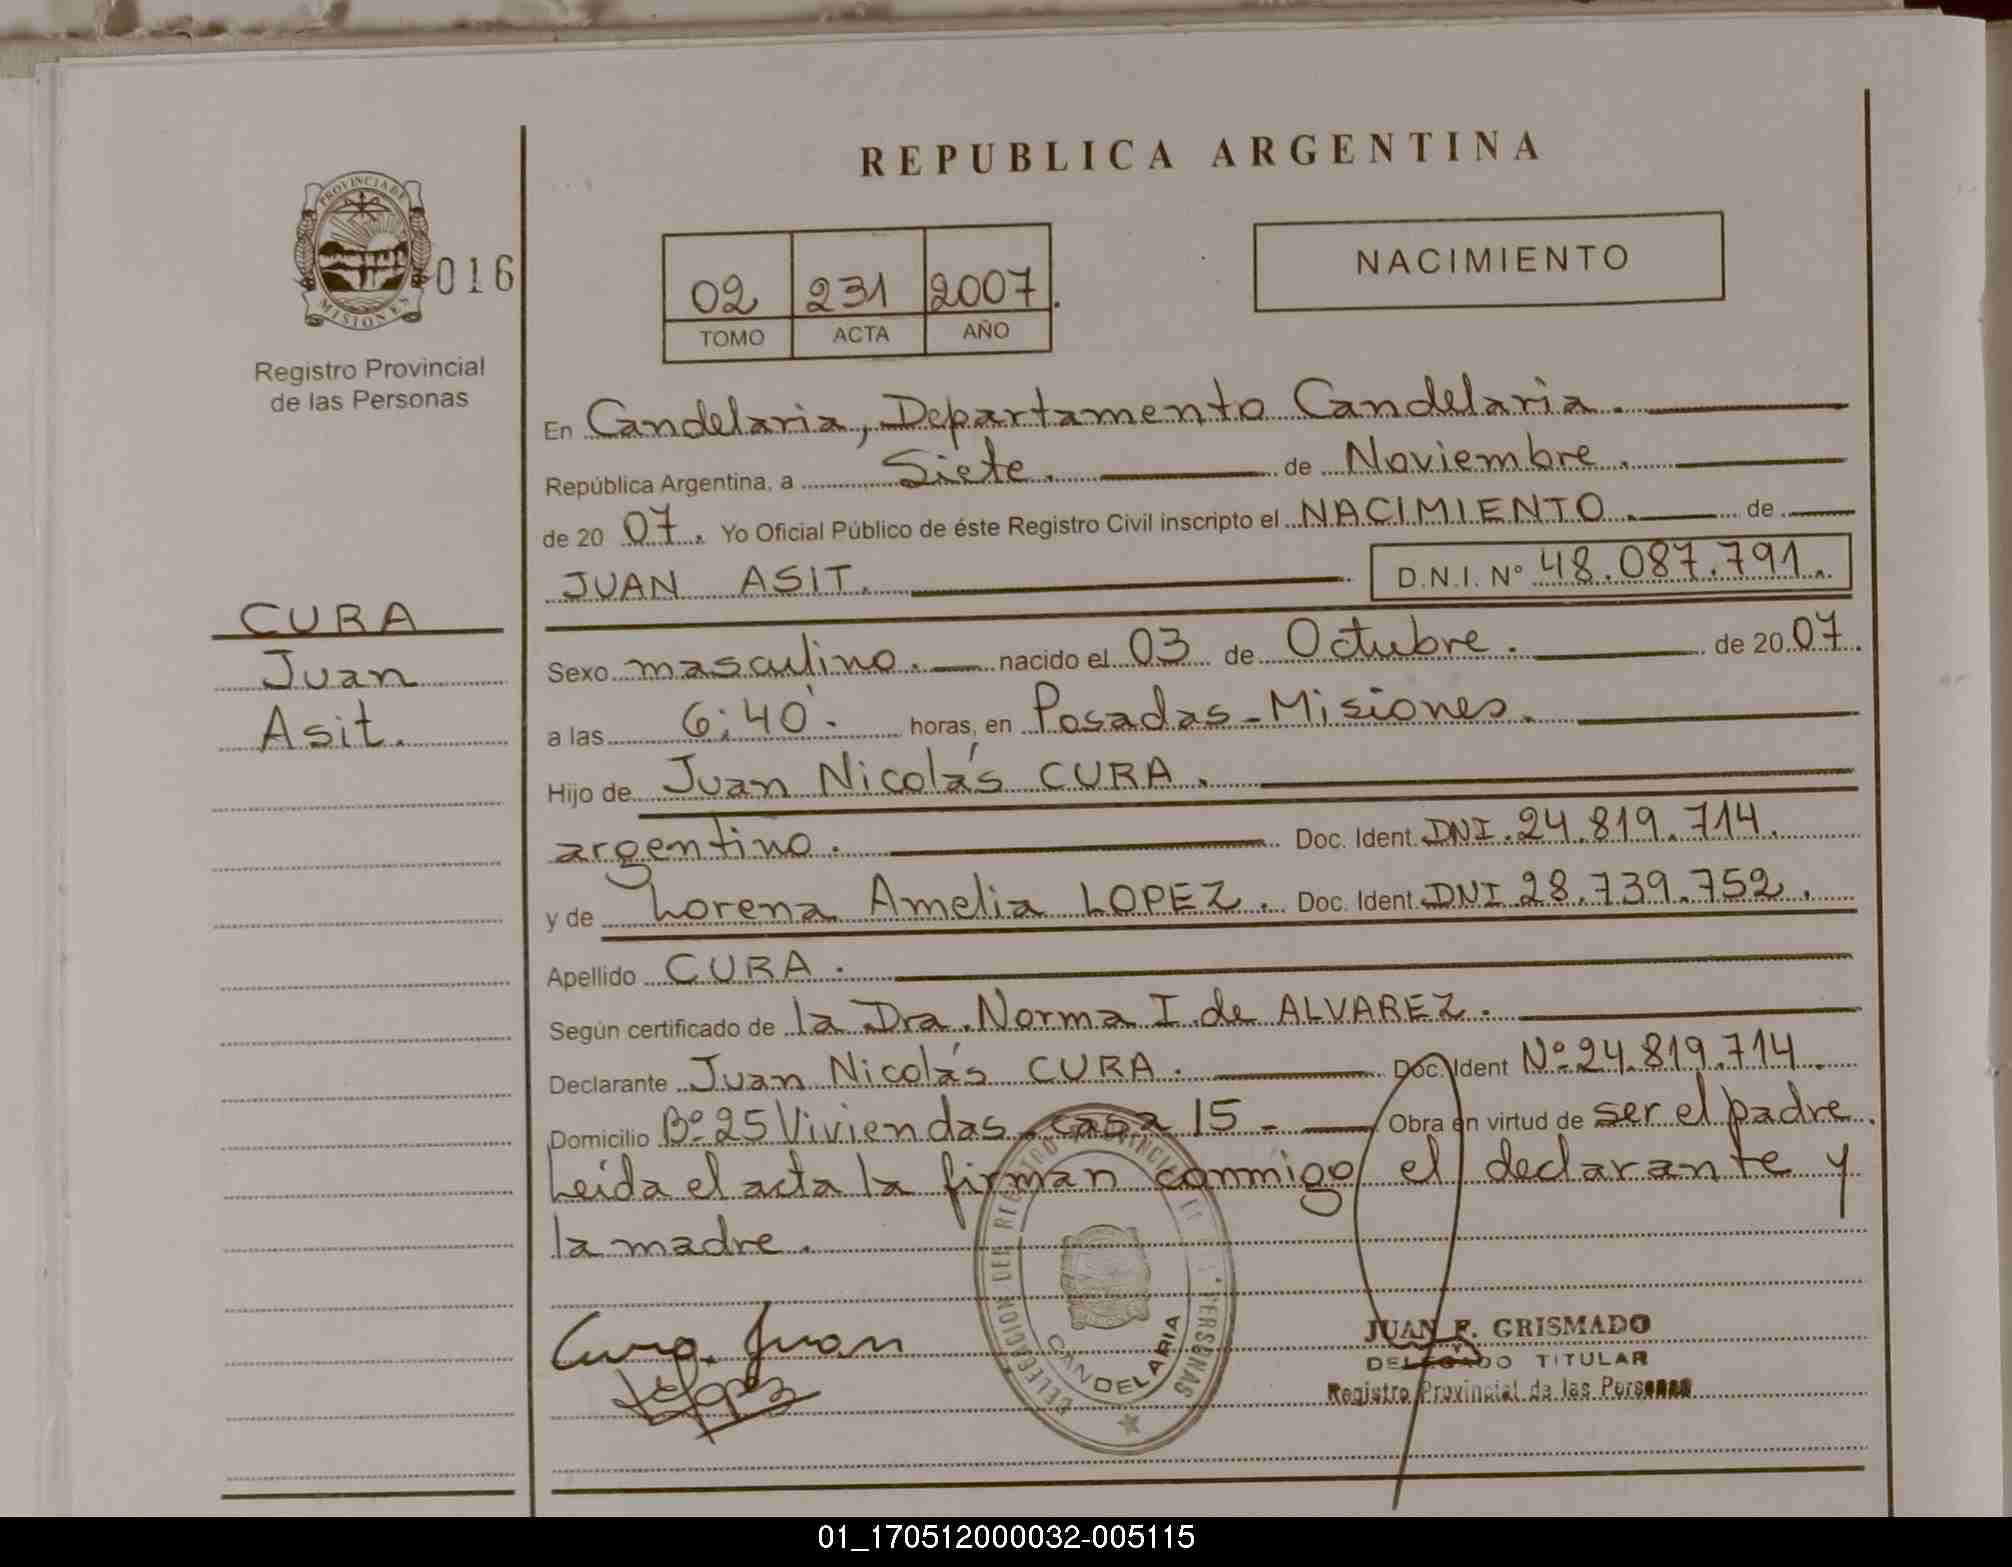 REPUBLICA ARGENTINA
PROVINCIA DE MISIONES
016
Registro Provincial
de las Personas
02 231 2007.
TOMO ACTA AÑO
NACIMIENTO
En Candelaria, Departamento Candelaria.
República Argentina, a Siete. de Noviembre.
de 20 07. Yo Oficial Público de éste Registro Civil inscripto el NACIMIENTO. de
JUAN ASIT. D.N.I. Nº 48.087.791.
CURA
Juan
Asit.
Sexo masculino. nacido el 03 de Octubre. de 20 07.
a las 6:40'. horas, en Posadas-Misiones.
Hijo de Juan Nicolás CURA.
argentino. Doc. Ident. DNI.24.819.714.
y de Lorena Amelia LOPEZ. Doc. Ident. DNI 28.739.752.
Apellido CURA.
Según certificado de la Dra. Norma I. de ALVAREZ.
Declarante Juan Nicolás CURA. Doc. Ident Nº 24.819.714.
Domicilio Bº 25 Viviendas - casa 15 - Obra en virtud de ser el padre.
Leída el acta la firman conmigo el declarante y
la madre.
Cura Juan
JUAN F. GRISMADO
DELEGADO TITULAR
Registro Provincial de las Personas
CANDELARIA
01_170512000032-005115